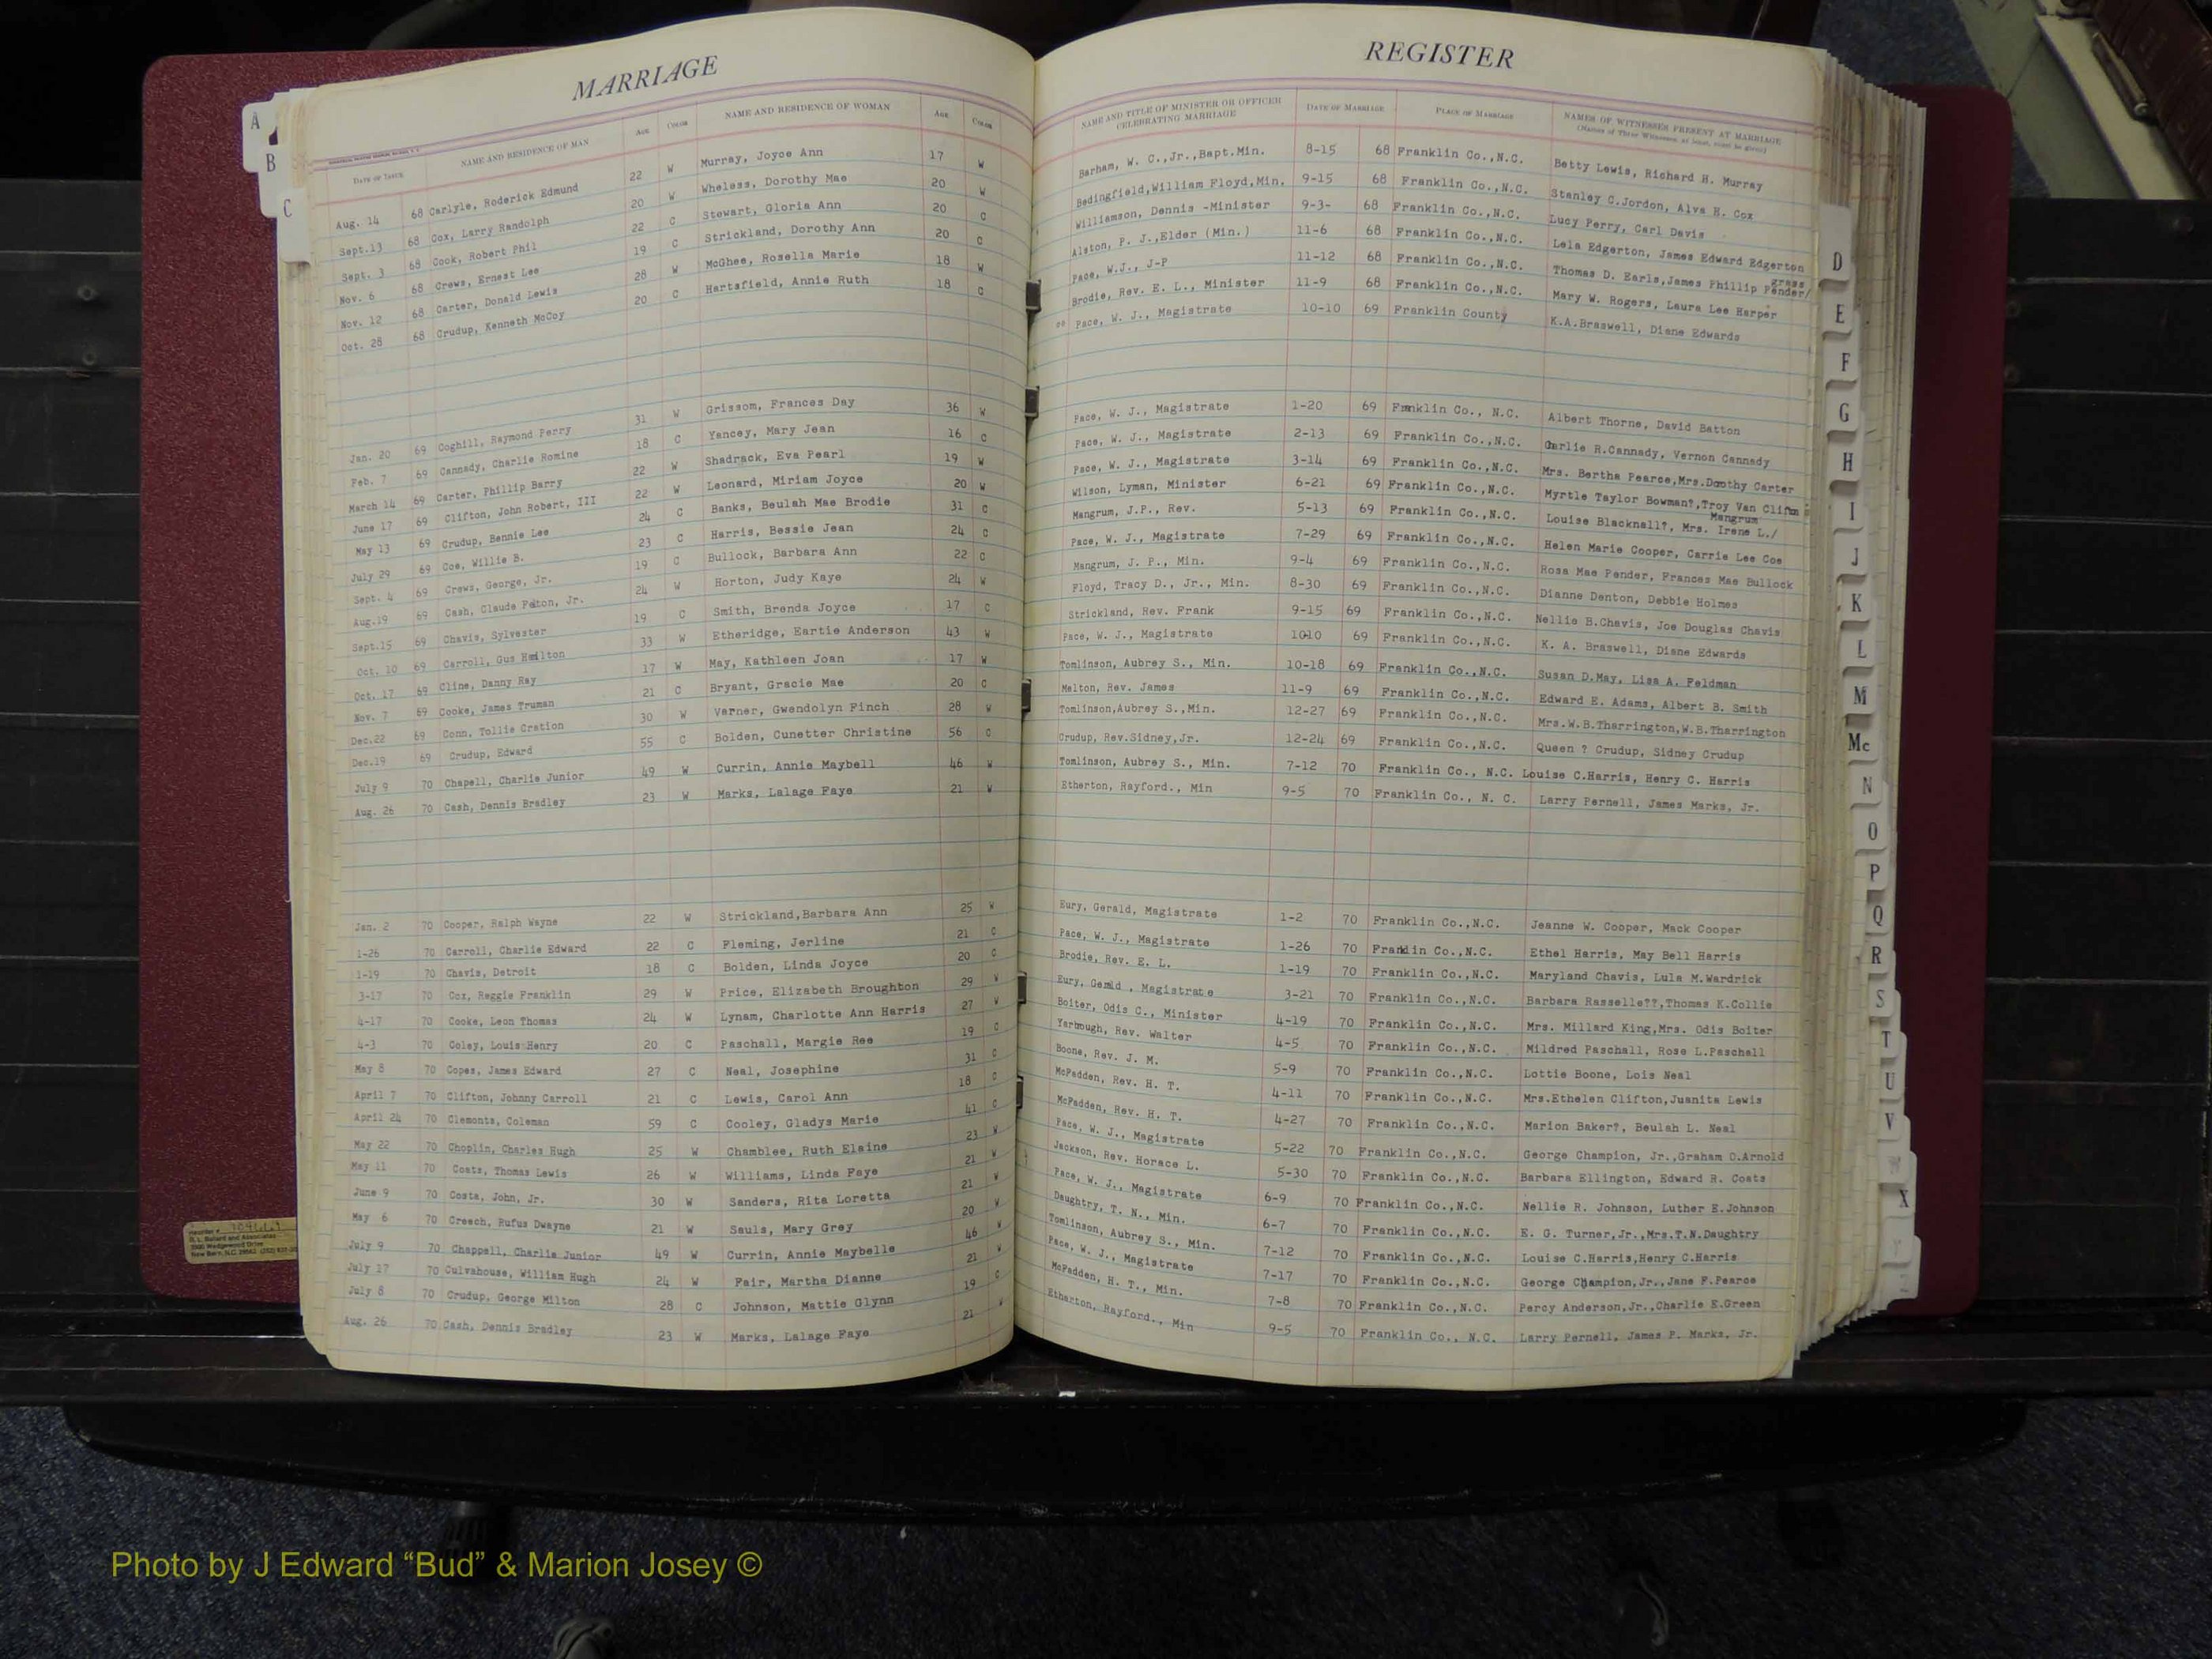 MARRIAGE
REGISTER
DATE OF ISSUE NAME AND RESIDENCE OF MAN AGE COLOR NAME AND RESIDENCE OF WOMAN AGE COLOR NAME AND TITLE OF MINISTER OR OFFICER CELEBRATING MARRIAGE DATE OF MARRIAGE PLACE OF MARRIAGE NAMES OF WITNESSES PRESENT AT MARRIAGE
(Names of Three Witnesses, at least, must be given)
Aug. 14 68 Carlyle, Roderick Edmund 22 W Murray, Joyce Ann 17 W Barham, W. C.,Jr.,Bapt.Min. 8-15 68 Franklin Co.,N.C. Betty Lewis, Richard H. Murray
Sept.13 68 Cox, Larry Randolph 20 W Wheless, Dorothy Mae 20 W Bedingfield,William Floyd,Min. 9-15 68 Franklin Co.,N.C. Stanley C.Jordon, Alva H. Cox
Sept. 3 68 Cook, Robert Phil 22 C Stewart, Gloria Ann 20 C Williamson, Dennis -Minister 9-3- 68 Franklin Co.,N.C. Lucy Perry, Carl Davis
Nov. 6 68 Crews, Ernest Lee 19 C Strickland, Dorothy Ann 20 C Alston, P. J.,Elder (Min.) 11-6 68 Franklin Co.,N.C. Lela Edgerton, James Edward Edgerton
Nov. 12 68 Carter, Donald Lewis 28 W McGhee, Rosella Marie 18 W Pace, W.J., J-P 11-12 68 Franklin Co.,N.C. Thomas D. Earls,James Phillip Pender/grass
Oct. 28 68 Crudup, Kenneth McCoy 20 C Hartsfield, Annie Ruth 18 C Brodie, Rev. E. L., Minister 11-9 68 Franklin Co.,N.C. Mary W. Rogers, Laura Lee Harper
Pace, W. J., Magistrate 10-10 69 Franklin County K.A.Braswell, Diane Edwards
Jan. 20 69 Coghill, Raymond Perry 31 W Grissom, Frances Day 36 W Pace, W. J., Magistrate 1-20 69 Franklin Co., N.C. Albert Thorne, David Batton
Feb. 7 69 Cannady, Charlie Romine 18 C Yancey, Mary Jean 16 C Pace, W. J., Magistrate 2-13 69 Franklin Co.,N.C. Carlie R.Cannady, Vernon Cannady
March 14 69 Carter, Phillip Barry 22 W Shadrack, Eva Pearl 19 W Pace, W. J., Magistrate 3-14 69 Franklin Co.,N.C. Mrs. Bertha Pearce,Mrs.Dorothy Carter
June 17 69 Clifton, John Robert, III 22 W Leonard, Miriam Joyce 20 W Wilson, Lyman, Minister 6-21 69 Franklin Co.,N.C. Myrtle Taylor Bowman?,Troy Van Clifton
May 13 69 Crudup, Bennie Lee 24 C Banks, Beulah Mae Brodie 31 C Mangrum, J.P., Rev. 5-13 69 Franklin Co.,N.C. Louise Blacknall?, Mrs. Irene L./Mangrum
July 29 69 Coe, Willie B. 23 C Harris, Bessie Jean 24 C Pace, W. J., Magistrate 7-29 69 Franklin Co.,N.C. Helen Marie Cooper, Carrie Lee Coe
Sept. 4 69 Crews, George, Jr. 19 C Bullock, Barbara Ann 22 C Mangrum, J. P., Min. 9-4 69 Franklin Co.,N.C. Rosa Mae Pender, Frances Mae Bullock
Aug.19 69 Cash, Claude Paton, Jr. 24 W Horton, Judy Kaye 24 W Floyd, Tracy D., Jr., Min. 8-30 69 Franklin Co.,N.C. Dianne Denton, Debbie Holmes
Sept.15 69 Chavis, Sylvester 19 C Smith, Brenda Joyce 17 C Strickland, Rev. Frank 9-15 69 Franklin Co.,N.C. Nellie B.Chavis, Joe Douglas Chavis
Oct. 10 69 Carroll, Gus Hamilton 33 W Etheridge, Eartie Anderson 43 W Pace, W. J., Magistrate 1010 69 Franklin Co.,N.C. K. A. Braswell, Diane Edwards
Oct. 17 69 Cline, Danny Ray 17 W May, Kathleen Joan 17 W Tomlinson, Aubrey S., Min. 10-18 69 Franklin Co.,N.C. Susan D.May, Lisa A. Feldman
Nov. 7 69 Cooke, James Truman 21 C Bryant, Gracie Mae 20 C Melton, Rev. James 11-9 69 Franklin Co.,N.C. Edward E. Adams, Albert B. Smith
Dec.22 69 Conn, Tollie Cration 30 W Varner, Gwendolyn Finch 28 W Tomlinson,Aubrey S.,Min. 12-27 69 Franklin Co.,N.C. Mrs.W.B.Tharrington,W.B.Tharrington
Dec.19 69 Crudup, Edward 55 C Bolden, Cunetter Christine 56 C Crudup, Rev.Sidney,Jr. 12-24 69 Franklin Co.,N.C. Queen ? Crudup, Sidney Crudup
July 9 70 Chapell, Charlie Junior 49 W Currin, Annie Maybell 46 W Tomlinson, Aubrey S., Min. 7-12 70 Franklin Co., N.C. Louise C.Harris, Henry C. Harris
Aug. 26 70 Cash, Dennis Bradley 23 W Marks, Lalage Faye 21 W Etherton, Rayford., Min 9-5 70 Franklin Co., N. C. Larry Pernell, James Marks, Jr.
Jan. 2 70 Cooper, Ralph Wayne 22 W Strickland,Barbara Ann 25 W Eury, Gerald, Magistrate 1-2 70 Franklin Co.,N.C. Jeanne W. Cooper, Mack Cooper
1-26 70 Carroll, Charlie Edward 22 C Fleming, Jerline 21 C Pace, W. J., Magistrate 1-26 70 Franklin Co.,N.C. Ethel Harris, May Bell Harris
1-19 70 Chavis, Detroit 18 C Bolden, Linda Joyce 20 C Brodie, Rev. E. L. 1-19 70 Franklin Co.,N.C. Maryland Chavis, Lula M.Wardrick
3-17 70 Cox, Reggie Franklin 29 W Price, Elizabeth Broughton 29 W Eury, Gerald , Magistrate 3-21 70 Franklin Co.,N.C. Barbara Rasselle??,Thomas K.Collie
4-17 70 Cooke, Leon Thomas 24 W Lynam, Charlotte Ann Harris 27 W Boiter, Odis C., Minister 4-19 70 Franklin Co.,N.C. Mrs. Millard King,Mrs. Odis Boiter
4-3 70 Coley, Louis Henry 20 C Paschall, Margie Ree 19 C Yarbough, Rev. Walter 4-5 70 Franklin Co.,N.C. Mildred Paschall, Rose L.Paschall
May 8 70 Copes, James Edward 27 C Neal, Josephine 31 C Boone, Rev. J. M. 5-9 70 Franklin Co.,N.C. Lottie Boone, Lois Neal
April 7 70 Clifton, Johnny Carroll 21 C Lewis, Carol Ann 18 C McFadden, Rev. H. T. 4-11 70 Franklin Co.,N.C. Mrs.Ethelen Clifton,Juanita Lewis
April 24 70 Clemonts, Coleman 59 C Cooley, Gladys Marie 41 C McFadden, Rev. H. T. 4-27 70 Franklin Co.,N.C. Marion Baker?, Beulah L. Neal
May 22 70 Choplin, Charles Hugh 25 W Chamblee, Ruth Elaine 23 W Pace, W. J., Magistrate 5-22 70 Franklin Co.,N.C. George Champion, Jr.,Graham O.Arnold
May 11 70 Coats, Thomas Lewis 26 W Williams, Linda Faye 21 W Jackson, Rev. Horace L. 5-30 70 Franklin Co.,N.C. Barbara Ellington, Edward R. Coats
June 9 70 Costa, John, Jr. 30 W Sanders, Rita Loretta 21 W Pace, W. J., Magistrate 6-9 70 Franklin Co.,N.C. Nellie R. Johnson, Luther E.Johnson
May 6 70 Creech, Rufus Dwayne 21 W Sauls, Mary Grey 20 W Daughtry, T. N., Min. 6-7 70 Franklin Co.,N.C. E. G. Turner,Jr.,Mrs.T.N.Daughtry
July 9 70 Chappell, Charlie Junior 49 W Currin, Annie Maybelle 46 W Tomlinson, Aubrey S., Min. 7-12 70 Franklin Co.,N.C. Louise C.Harris,Henry C.Harris
July 17 70 Culvahouse, William Hugh 24 W Fair, Martha Dianne 21 W Pace, W. J., Magistrate 7-17 70 Franklin Co.,N.C. George Champion,Jr.,Jane F.Pearce
July 8 70 Crudup, George Milton 28 C Johnson, Mattie Glynn 19 C McFadden, H. T., Min. 7-8 70 Franklin Co.,N.C. Percy Anderson,Jr.,Charlie E.Green
Aug. 26 70 Cash, Dennis Bradley 23 W Marks, Lalage Faye 21 W Etharton, Rayford., Min 9-5 70 Franklin Co., N.C. Larry Pernell, James P. Marks, Jr.
A
B
C
D
E
F
G
H
I
J
K
L
M
Mc
N
O
P
Q
R
S
T
U
V
W
X
Y
Z
Photo by J Edward “Bud” & Marion Josey ©